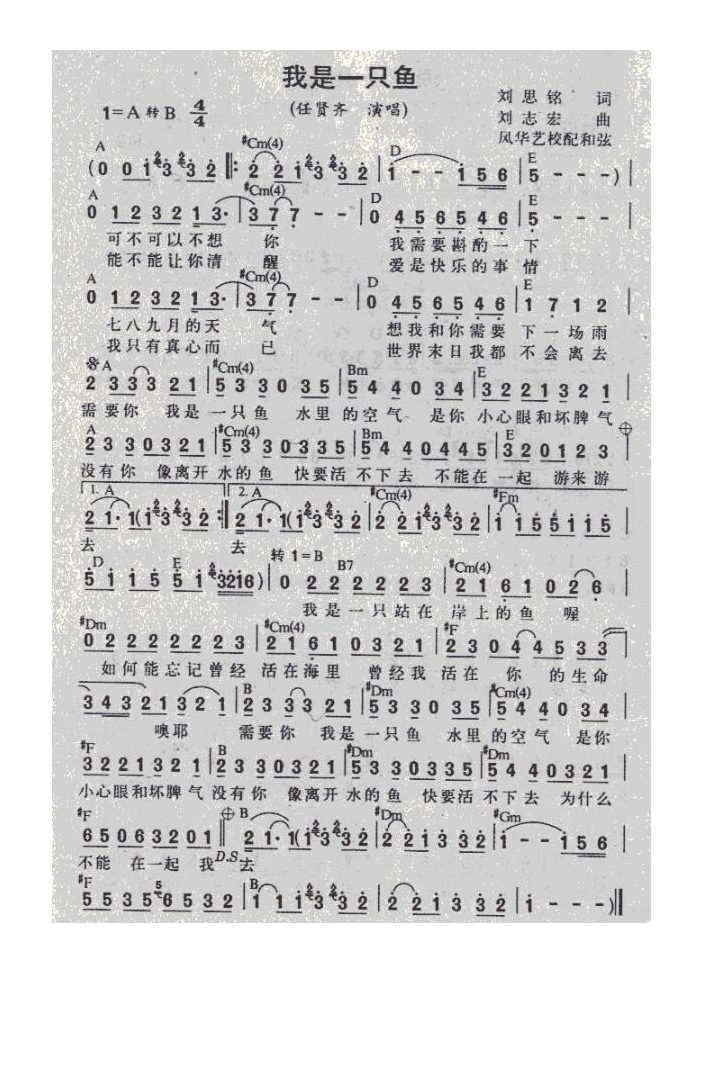 我是一只鱼
1=A 转 B 4/4
(任贤齐 演唱)
刘思铭 词
刘志宏 曲
风华艺校配和弦
A #Cm(4) D E
(0 0 i 3 3 2 ‖: 2 2 i 3 3 2 | i - - i 5 6 | 5 - - -) |
A #Cm(4) D E
0 1 2 3 2 1 3· | 3 7 7 - - | 0 4 5 6 5 4 6 | 5 - - - |
可不可以不想 你 我需要斟酌一 下
能不能让你清 醒 爱是快乐的事 情
A #Cm(4) D E
0 1 2 3 2 1 3· | 3 7 7 - - | 0 4 5 6 5 4 6 | 1 7 1 2 |
七八九月的天 气 想我和你需要 下一场雨
我只有真心而 已 世界末日我都 不会离去
A #Cm(4) Bm E
2 3 3 3 2 1 | 5 3 3 0 3 5 | 5 4 4 0 3 4 | 3 2 2 1 3 2 1 |
需要你 我是 一只鱼 水里 的空气 是你 小心眼和坏脾 气
A #Cm(4) Bm E
2 3 3 0 3 2 1 | 5 3 3 0 3 3 5 | 5 4 4 0 4 4 5 | 3 2 0 1 2 3 |
没有你 像离开 水的鱼 快要活 不下去 不能在 一起 游来游
1. A 2. A #Cm(4) #Fm
2 1· 1 (i 3 3 2 :‖ 2 1· 1 (i 3 3 2 | 2 2 i 3 3 2 | i i 5 5 i i 5 |
去 去
D E 转 1=B B7 #Cm(4)
5 i i 5 5 i 3 2 1 6) | 0 2 2 2 2 2 3 | 2 1 6 1 0 2 6 |
我是一只站在 岸上的鱼 喔
#Dm #Cm(4) #F
0 2 2 2 2 2 2 3 | 2 1 6 1 0 3 2 1 | 2 3 0 4 4 5 3 3 |
如何能忘记曾经 活在海里 曾经我 活在 你 的生命
B #Dm #Cm(4)
3 4 3 2 1 3 2 1 | 2 3 3 3 2 1 | 5 3 3 0 3 5 | 5 4 4 0 3 4 |
噢耶 需要你 我是一只鱼 水里的空气 是你
#F B #Dm #Dm
3 2 2 1 3 2 1 | 2 3 3 0 3 2 1 | 5 3 3 0 3 3 5 | 5 4 4 0 3 2 1 |
小心眼和坏脾 气 没有你 像离开 水的鱼 快要活 不下去 为什么
#F B #Dm #Gm
6 5 0 6 3 2 0 1 ‖ 2 1· 1 (i 3 3 2 | 2 2 i 3 3 2 | i - - i 5 6 |
不能 在一起 我 D.S. 去
#F B
5 5 3 5 5 6 5 3 2 | i i i 3 3 2 | 2 2 i 3 3 2 | i - - -) ‖